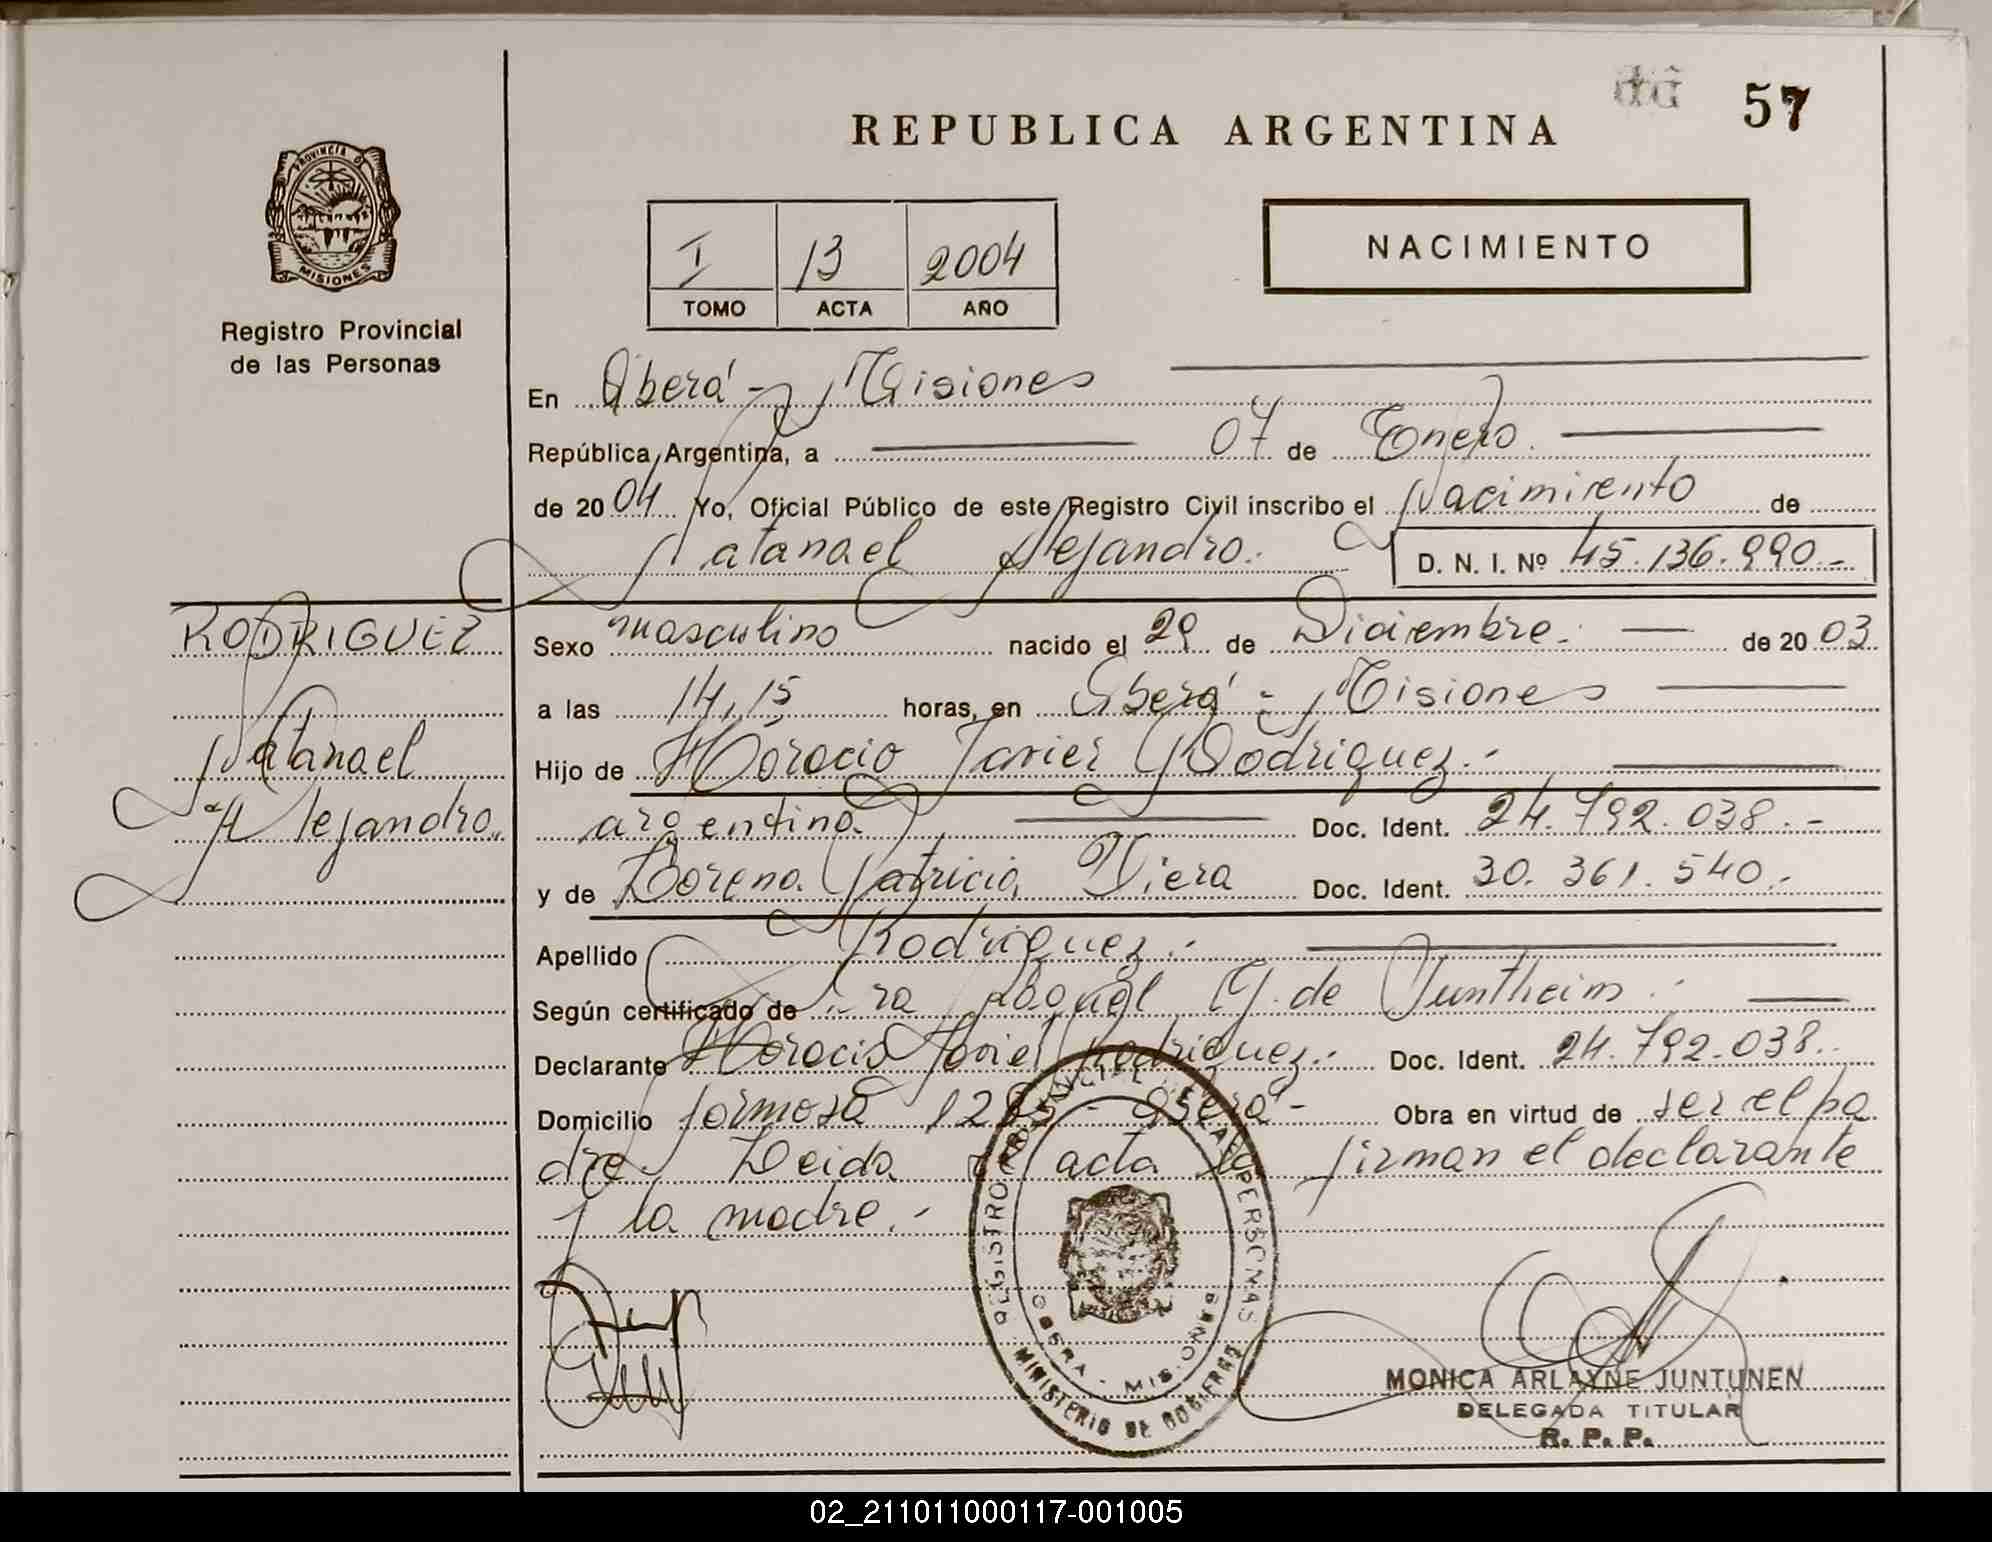 57
REPUBLICA ARGENTINA
PROVINCIA D
MISIONES
Registro Provincial
de las Personas
I 13 2004
TOMO ACTA AÑO
NACIMIENTO
En Oberá - Misiones
República Argentina, a 07 de Enero.
de 2004 Yo, Oficial Público de este Registro Civil inscribo el Nacimiento de
Natanael Alejandro. D. N. I. Nº 45.136.990.-
RODRIGUEZ
Natanael
Alejandro.
Sexo masculino nacido el 29 de Diciembre. de 2003
a las 14,15 horas, en Oberá - Misiones
Hijo de Horacio Javier Rodriguez.-
argentino. Doc. Ident. 24.792.038.-
y de Lorena Patricia Viera Doc. Ident. 30.361.540.-
Apellido Rodriguez.-
Según certificado de Dra G. de
Declarante Horacio Javier Rodriguez.- Doc. Ident. 24.792.038.-
Domicilio Formosa - Oberá - Obra en virtud de ser el pa
dre. Leida el acta la firman el declarante
y la madre.-
REGISTRO PROVINCIAL DE LAS PERSONAS
OBERA - MISIONES
MINISTERIO DE GOBIERNO
MONICA ARLAYNE JUNTUNEN
DELEGADA TITULAR
R. P. P.
02_211011000117-001005